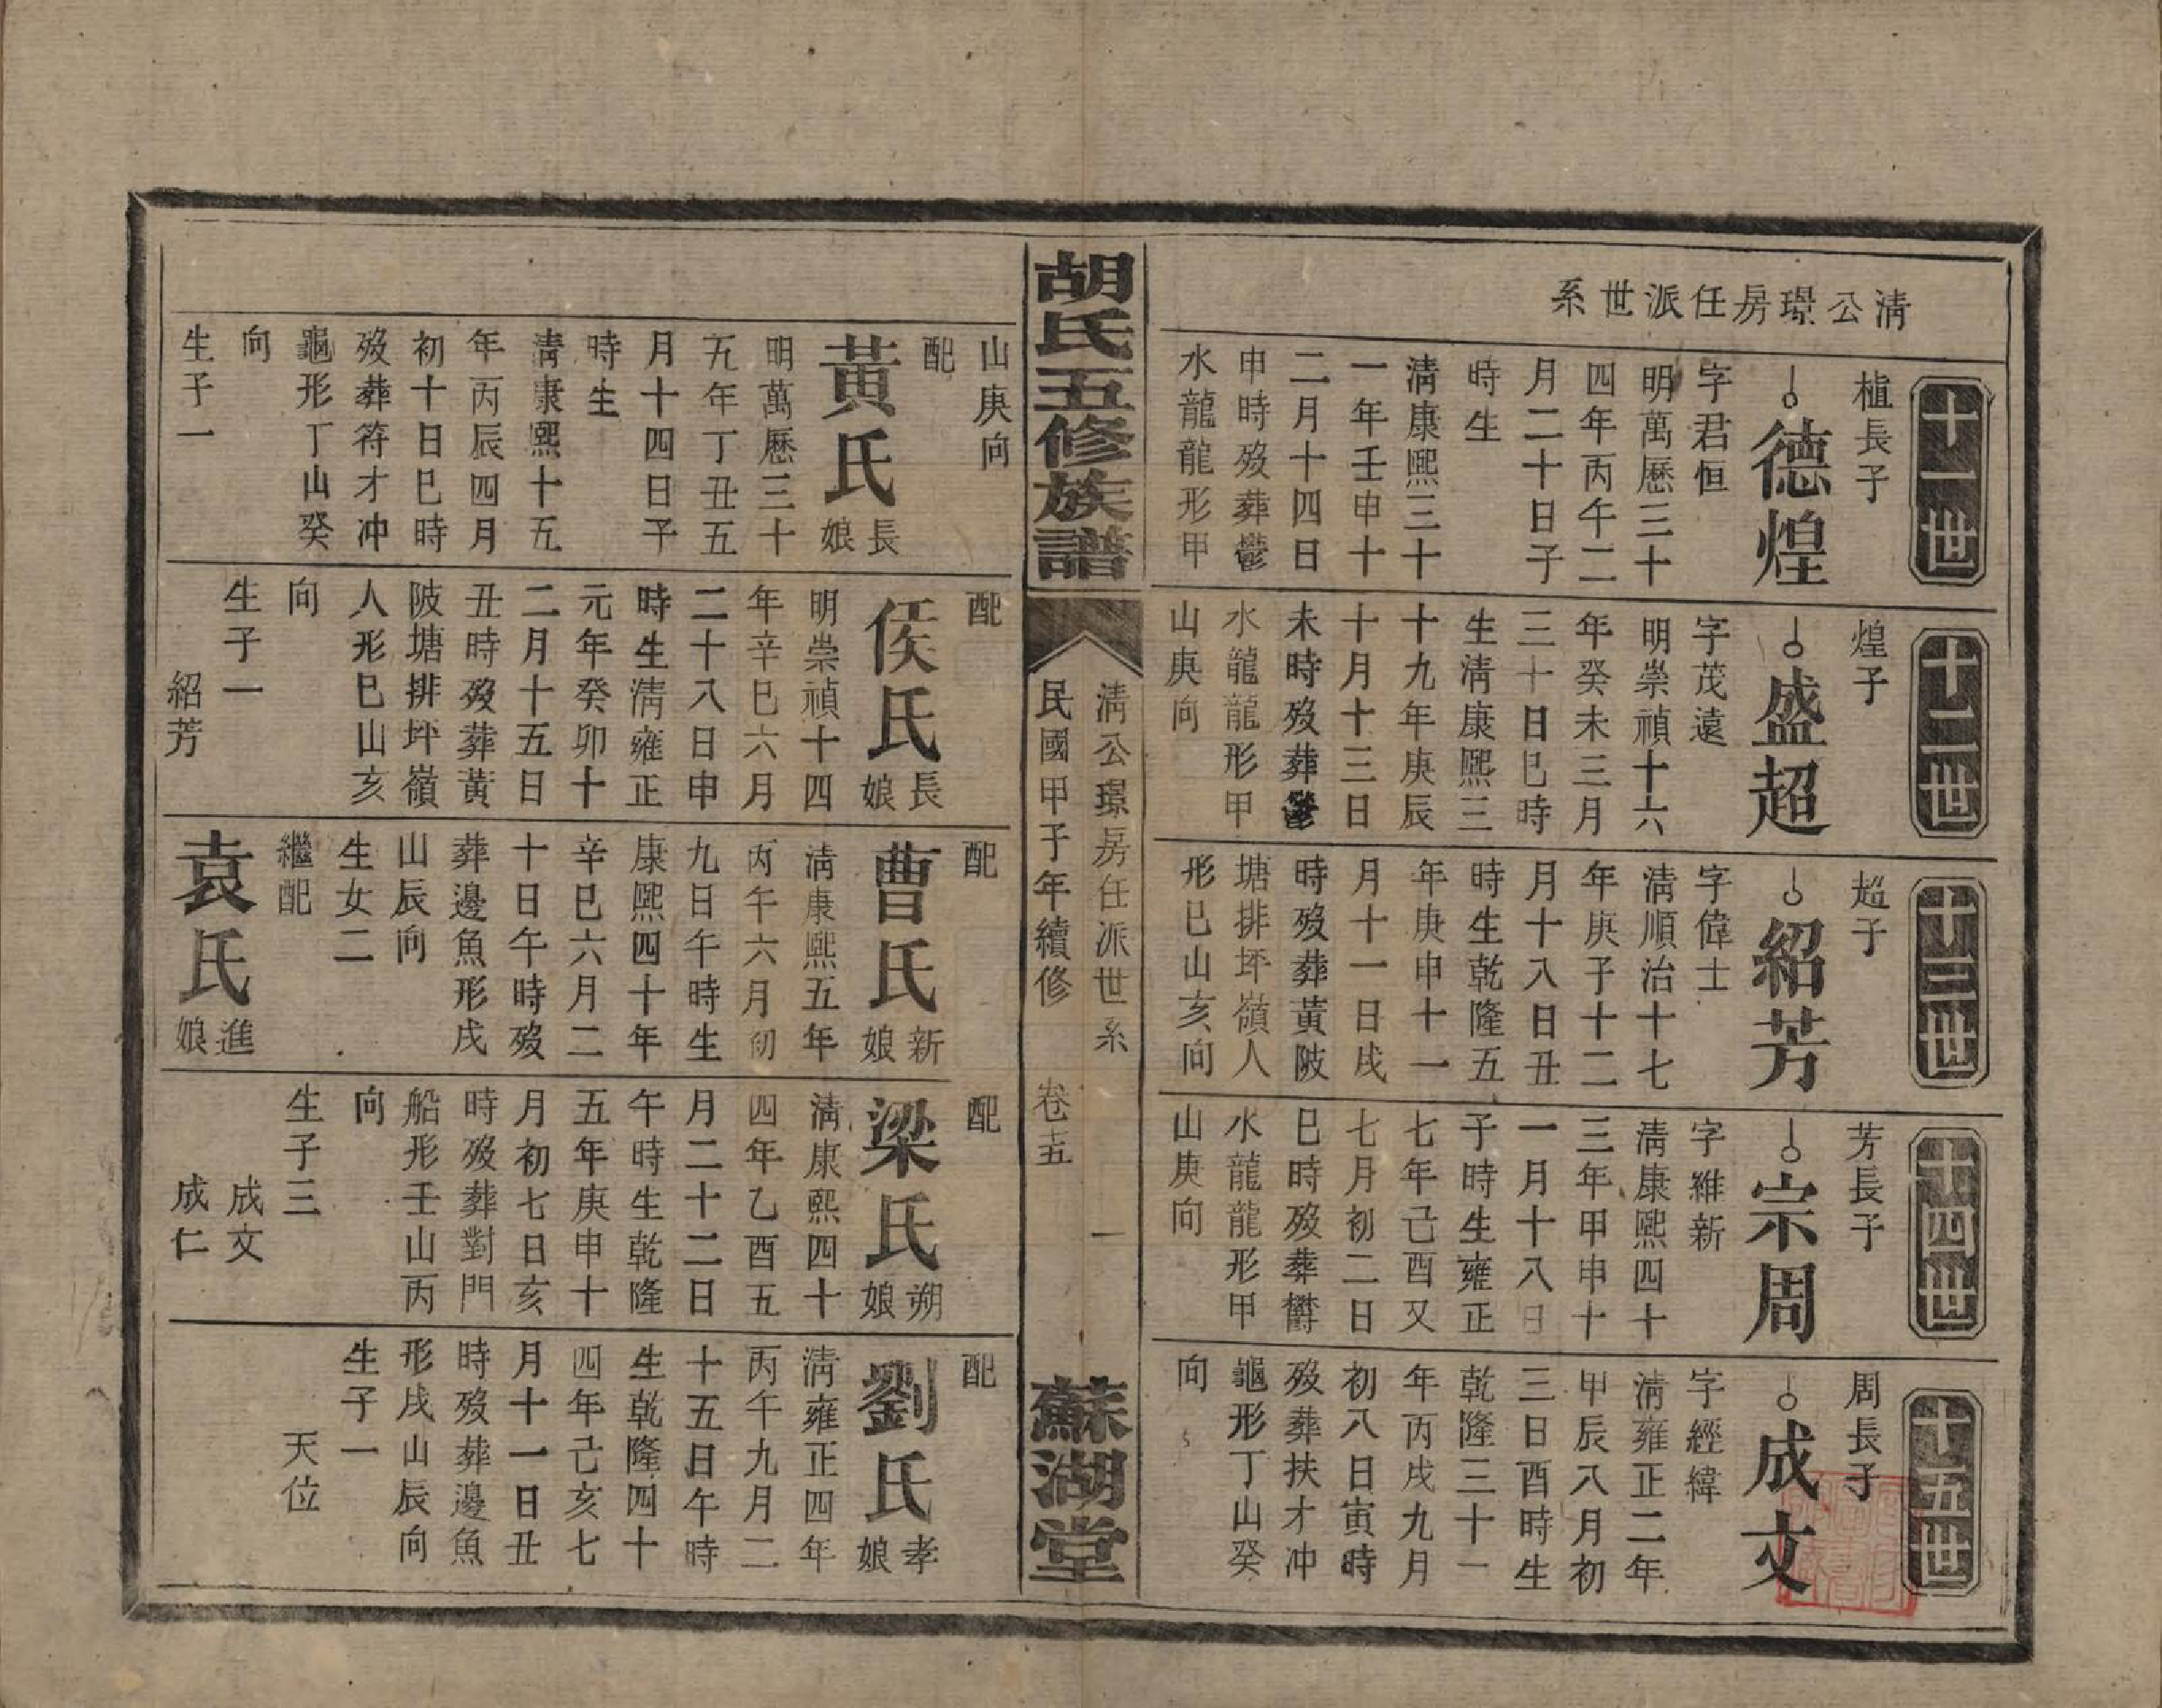 清公璟房任派世系
十一世
植長子
德煌
字君恒
明萬歷三十
四年丙午二
月二十日子
時生
清康熙三十
一年壬申十
二月十四日
申時歿葬鬱
水龍龍形甲
山庚向
配
黃氏
長娘
明萬歷三十
五年丁丑五
月十四日子
時生
清康熙十五
年丙辰四月
初十日巳時
歿葬符才冲
龜形丁山癸
向
生子一
十二世
煌子
盛超
字茂遠
明崇禎十六
年癸未三月
三十日巳時
生清康熙三
十九年庚辰
十月十三日
未時歿葬鬱
水龍龍形甲
山庚向
配
侯氏
長娘
明崇禎十四
年辛巳六月
二十八日申
時生清雍正
元年癸卯十
二月十五日
丑時歿葬黃
陂塘排坪嶺
人形巳山亥
向
生子一
紹芳
十三世
超子
紹芳
字偉士
清順治十七
年庚子十二
月十八日丑
時生乾隆五
年庚申十一
月十一日戌
時歿葬黃陂
塘排坪嶺人
形巳山亥向
配
曹氏
新娘
清康熙五年
丙午六月初
九日午時生
康熙四十年
辛巳六月二
十日午時歿
葬邊魚形戌
山辰向
生女二
繼配
袁氏
進娘
十四世
芳長子
宗周
字維新
清康熙四十
三年甲申十
一月十八日
子時生雍正
七年己酉又
七月初二日
巳時歿葬欝
水龍龍形甲
山庚向
配
梁氏
朔娘
清康熙四十
四年乙酉五
月二十二日
午時生乾隆
五年庚申十
月初七日亥
時歿葬對門
船形壬山丙
向
生子三
成文
成仁
十五世
周長子
成文
字經緯
清雍正二年
甲辰八月初
三日酉時生
乾隆三十一
年丙戌九月
初八日寅時
歿葬扶才冲
龜形丁山癸
向
配
劉氏
孝娘
清雍正四年
丙午九月二
十五日午時
生乾隆四十
四年己亥七
月十一日丑
時歿葬邊魚
形戌山辰向
生子一
天位
胡氏五修族譜
清公璟房任派世系
民國甲子年續修
卷十五
一
蘇湖堂